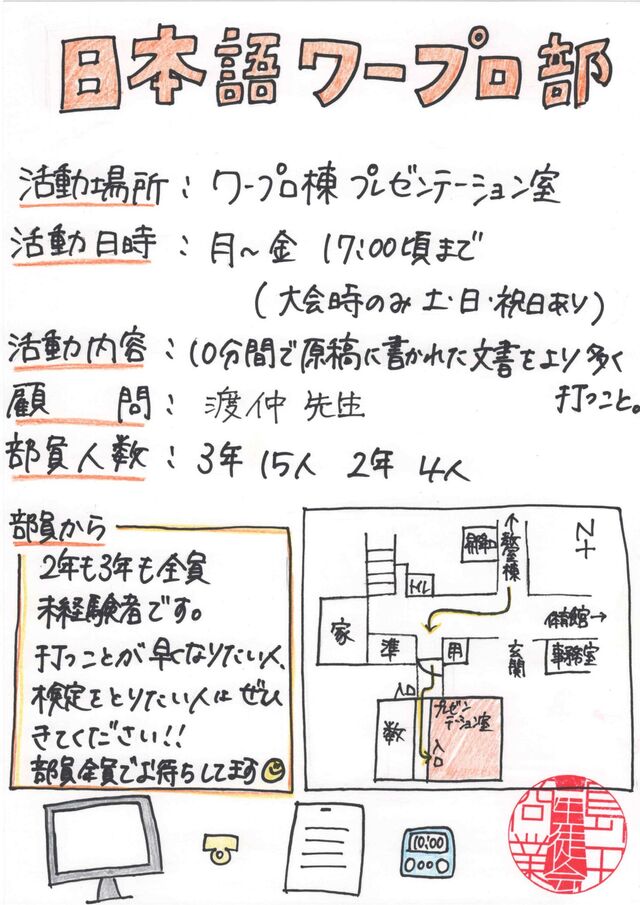 日本語ワープロ部
活動場所：ワープロ棟 プレゼンテーション室
活動日時：月～金 17:00頃まで
（大会時のみ 土・日・祝日あり）
活動内容：10分間で原稿に書かれた文書をより多く
打つこと。
顧問：渡仲 先生
部員人数：3年 15人 2年 4人
部員から
2年も3年も全員
未経験者です。
打つことが早くなりたい人、
検定をとりたい人は ぜひ
きてください!!
部員全員でお待ちしてます
↑教室棟
N
トイレ
体育館→
家
準
用
玄関
事務室
入口
数
プレゼン
テーション室
入口
10:00